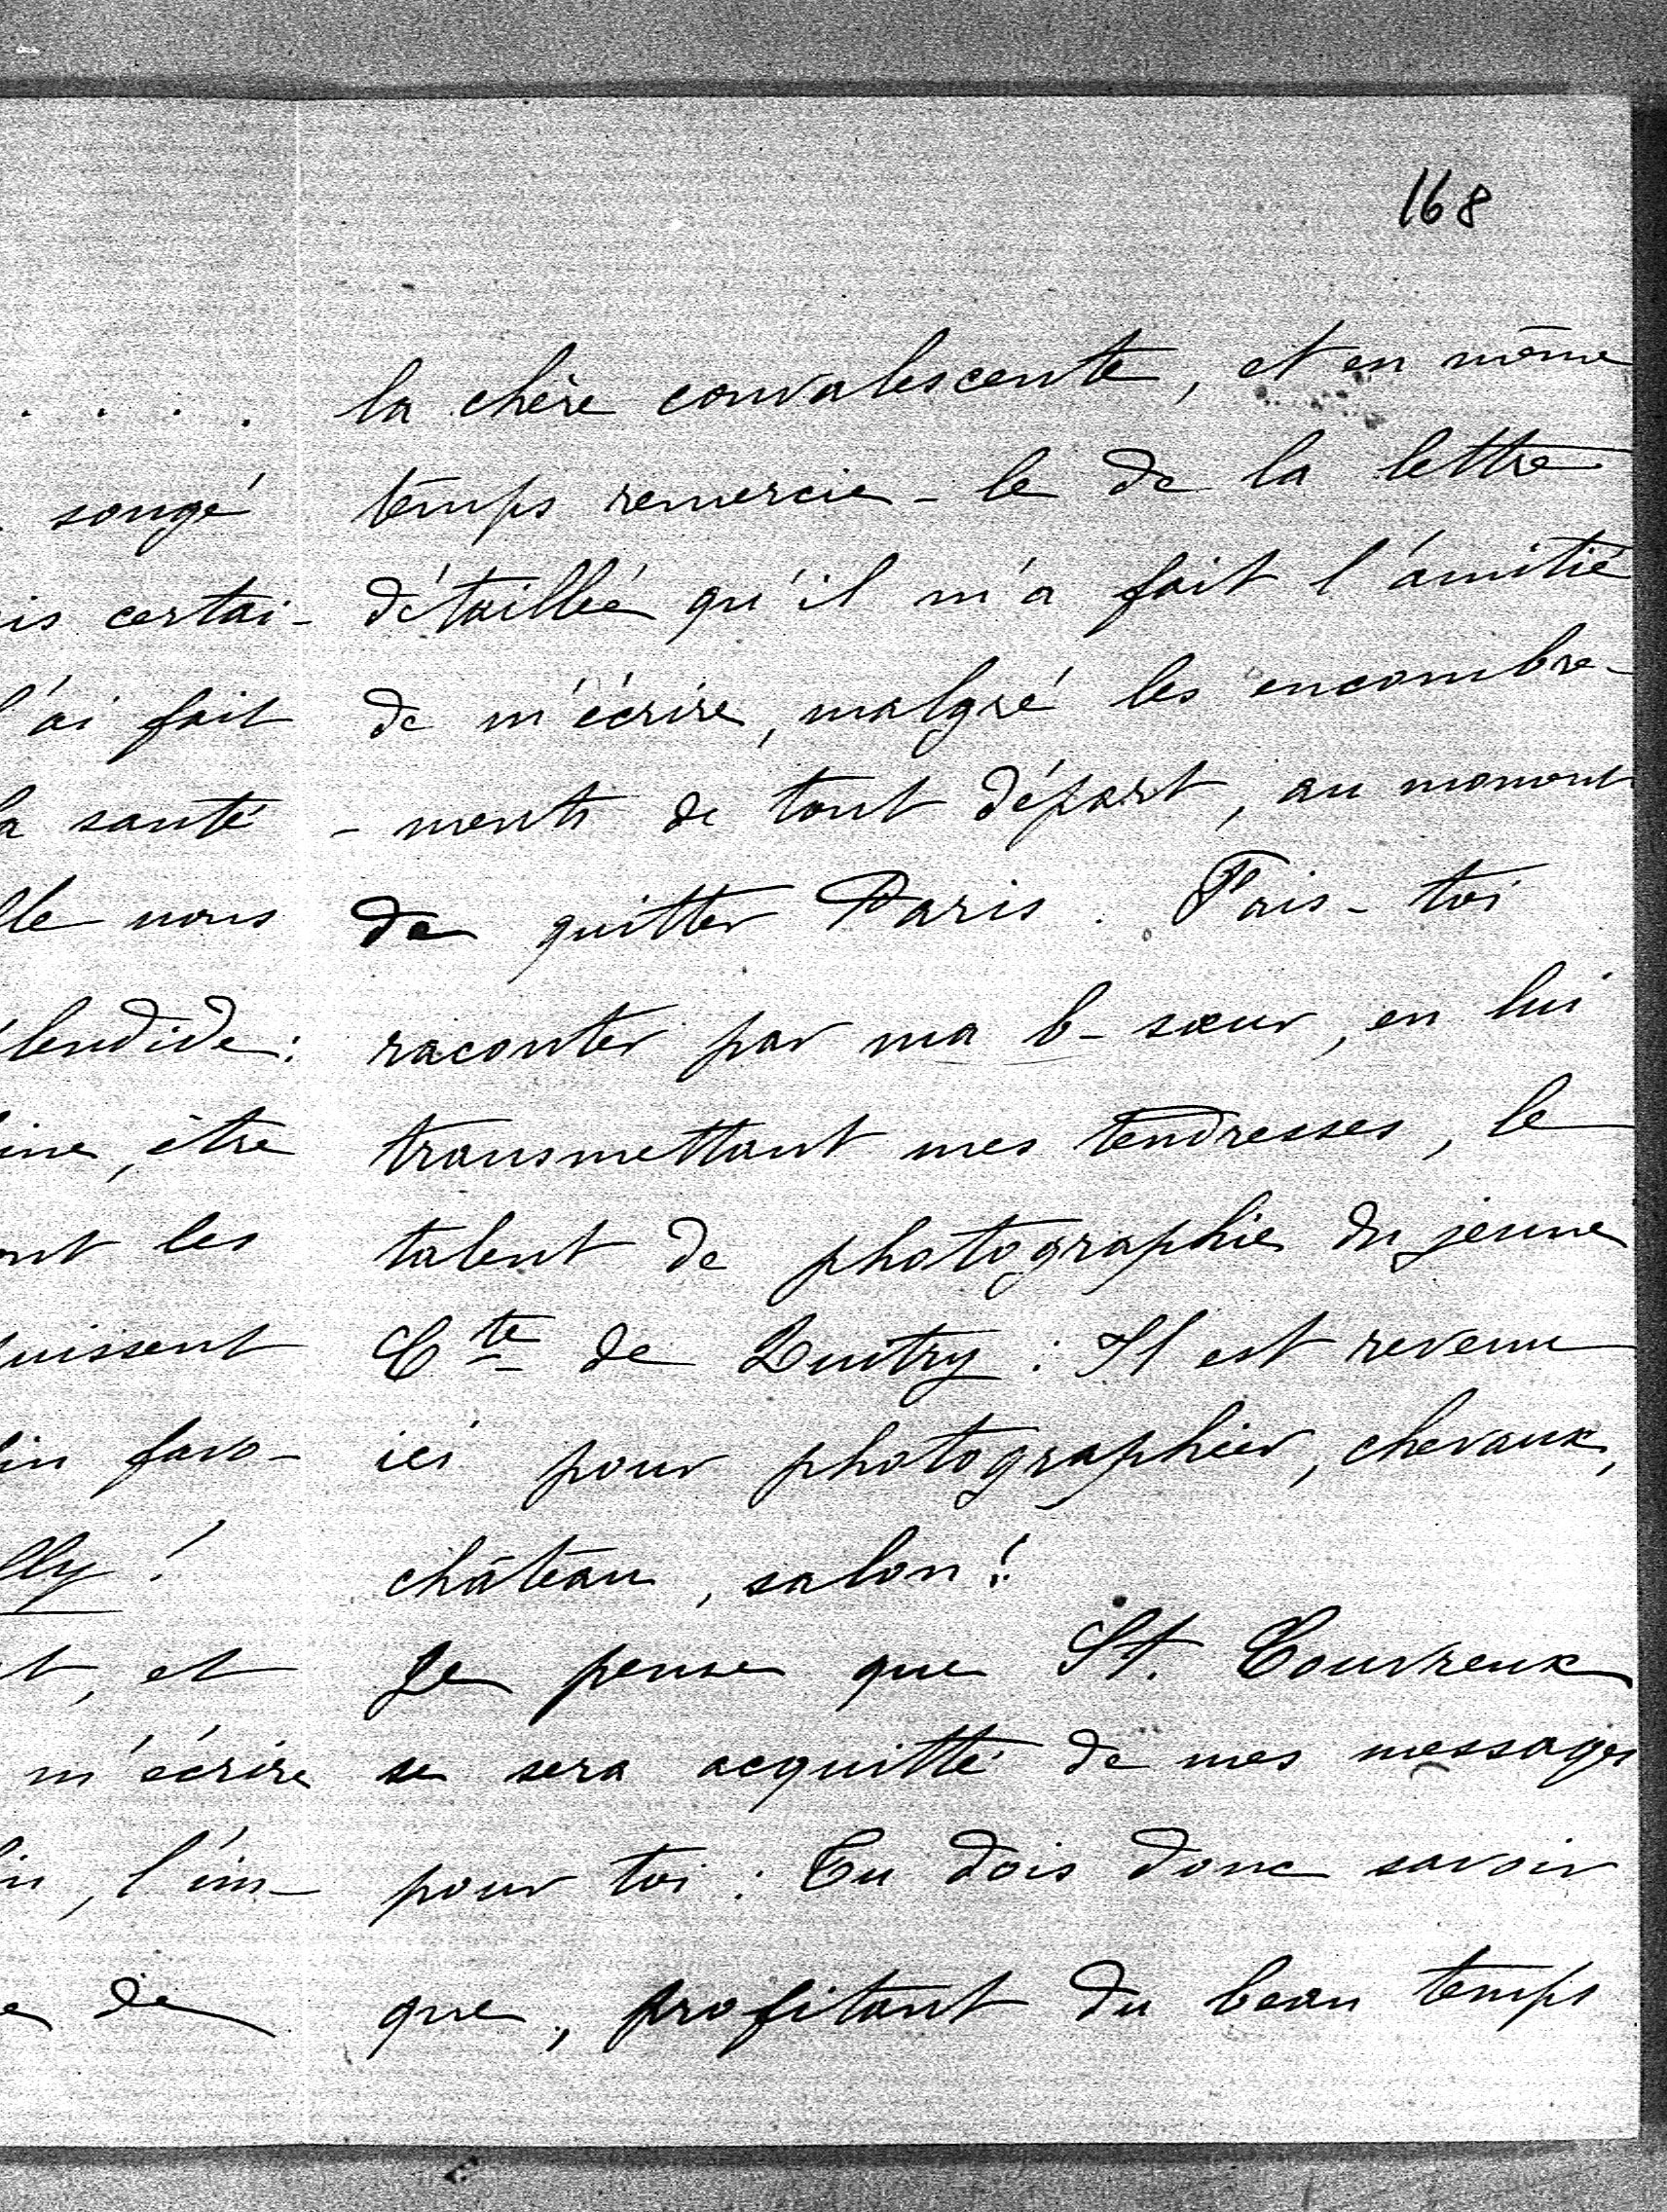 168
. . . .
songé
is certai-
l'ai fait
la santé
lle nous
lendide :
ine, être
ont les
uissent
in favo-
lly !
t, et
m'écrire
in, l'im-
e de
la chère convalescente, et en même
temps remercie-le de la lettre
détaillée qu'il m'a fait l'amitié
de m'écrire, malgré les encombre-
-ments de tout départ, au moment
de quitter Paris. Fais-toi
raconter par ma b-sœur, en lui
transmettant mes tendresses, le
talent de photographie du jeune
Cte de : Il est revenu
ici pour photographier, chevaux,
château, salon !
Je pense que St. Couvreux
se sera acquitté de mes messages
pour toi : Tu dois donc savoir
que, profitant du beau temps